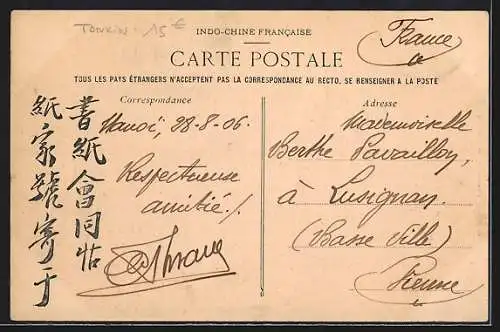 Tonkin 15€
INDO-CHINE FRANÇAISE
France
CARTE POSTALE
TOUS LES PAYS ÉTRANGERS N'ACCEPTENT PAS LA CORRESPONDANCE AU RECTO, SE RENSEIGNER A LA POSTE
Correspondance
Adresse
書紙會同怗
紙家號寄于
Hanoï, 28-8-06.
Respectueuse
amitié!.
Mademoiselle
Berthe Pavaillon,
à Lusignan.
(Basse Ville)
Vienne